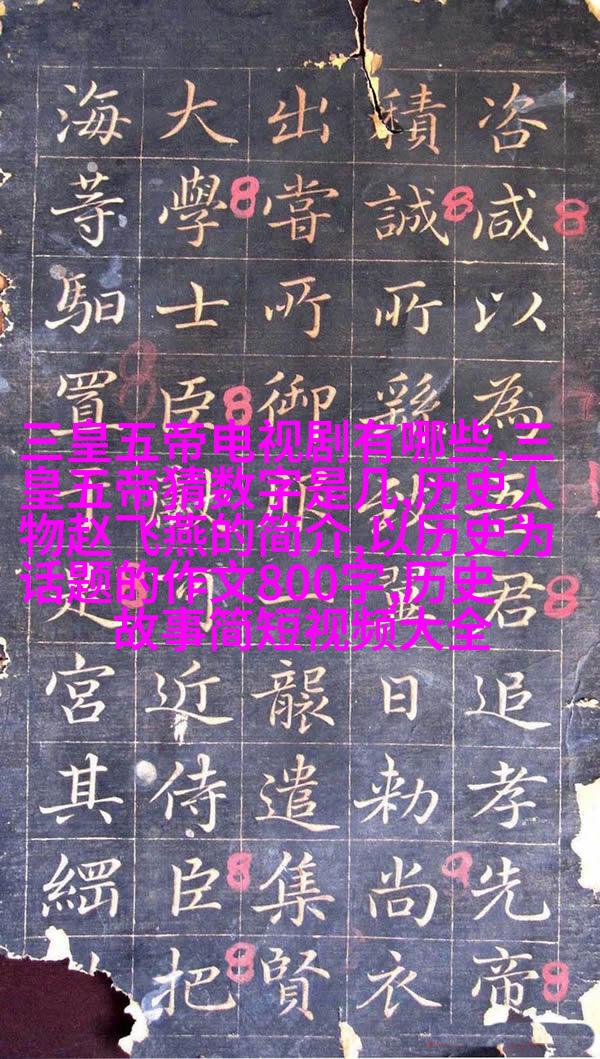 三皇五帝电视剧有哪些,三
皇五帝猜数字是几,历史人
物赵飞燕的简介,以历史为
话题的作文800字,历史
故事简短视频大全
咨咸以為君追孝先帝
積誠所日勑尚衣
出嘗所御一襲遣集賢
大學士臣近侍臣把
海等馹置于是宮其綱